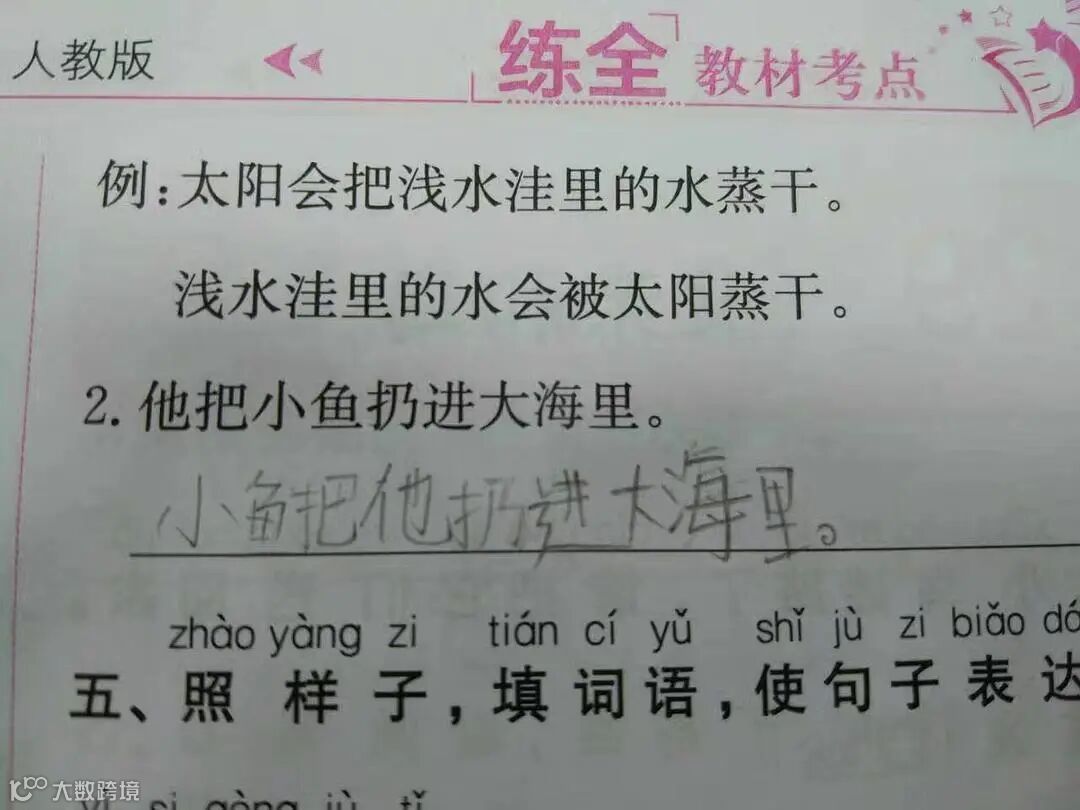 人教版 练全 教材考点
例:太阳会把浅水洼里的水蒸干。
浅水洼里的水会被太阳蒸干。
2. 他把小鱼扔进大海里。
小鱼把他扔进大海里。
zhào yàng zi tián cí yǔ shǐ jù zi biǎo dá
五、照样子,填词语,使句子表达
yì si gèng jù tǐ
大数跨境